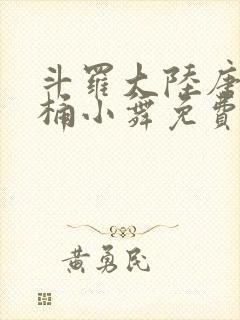 斗羅大陸唐
桶小舞免費
黃勇民